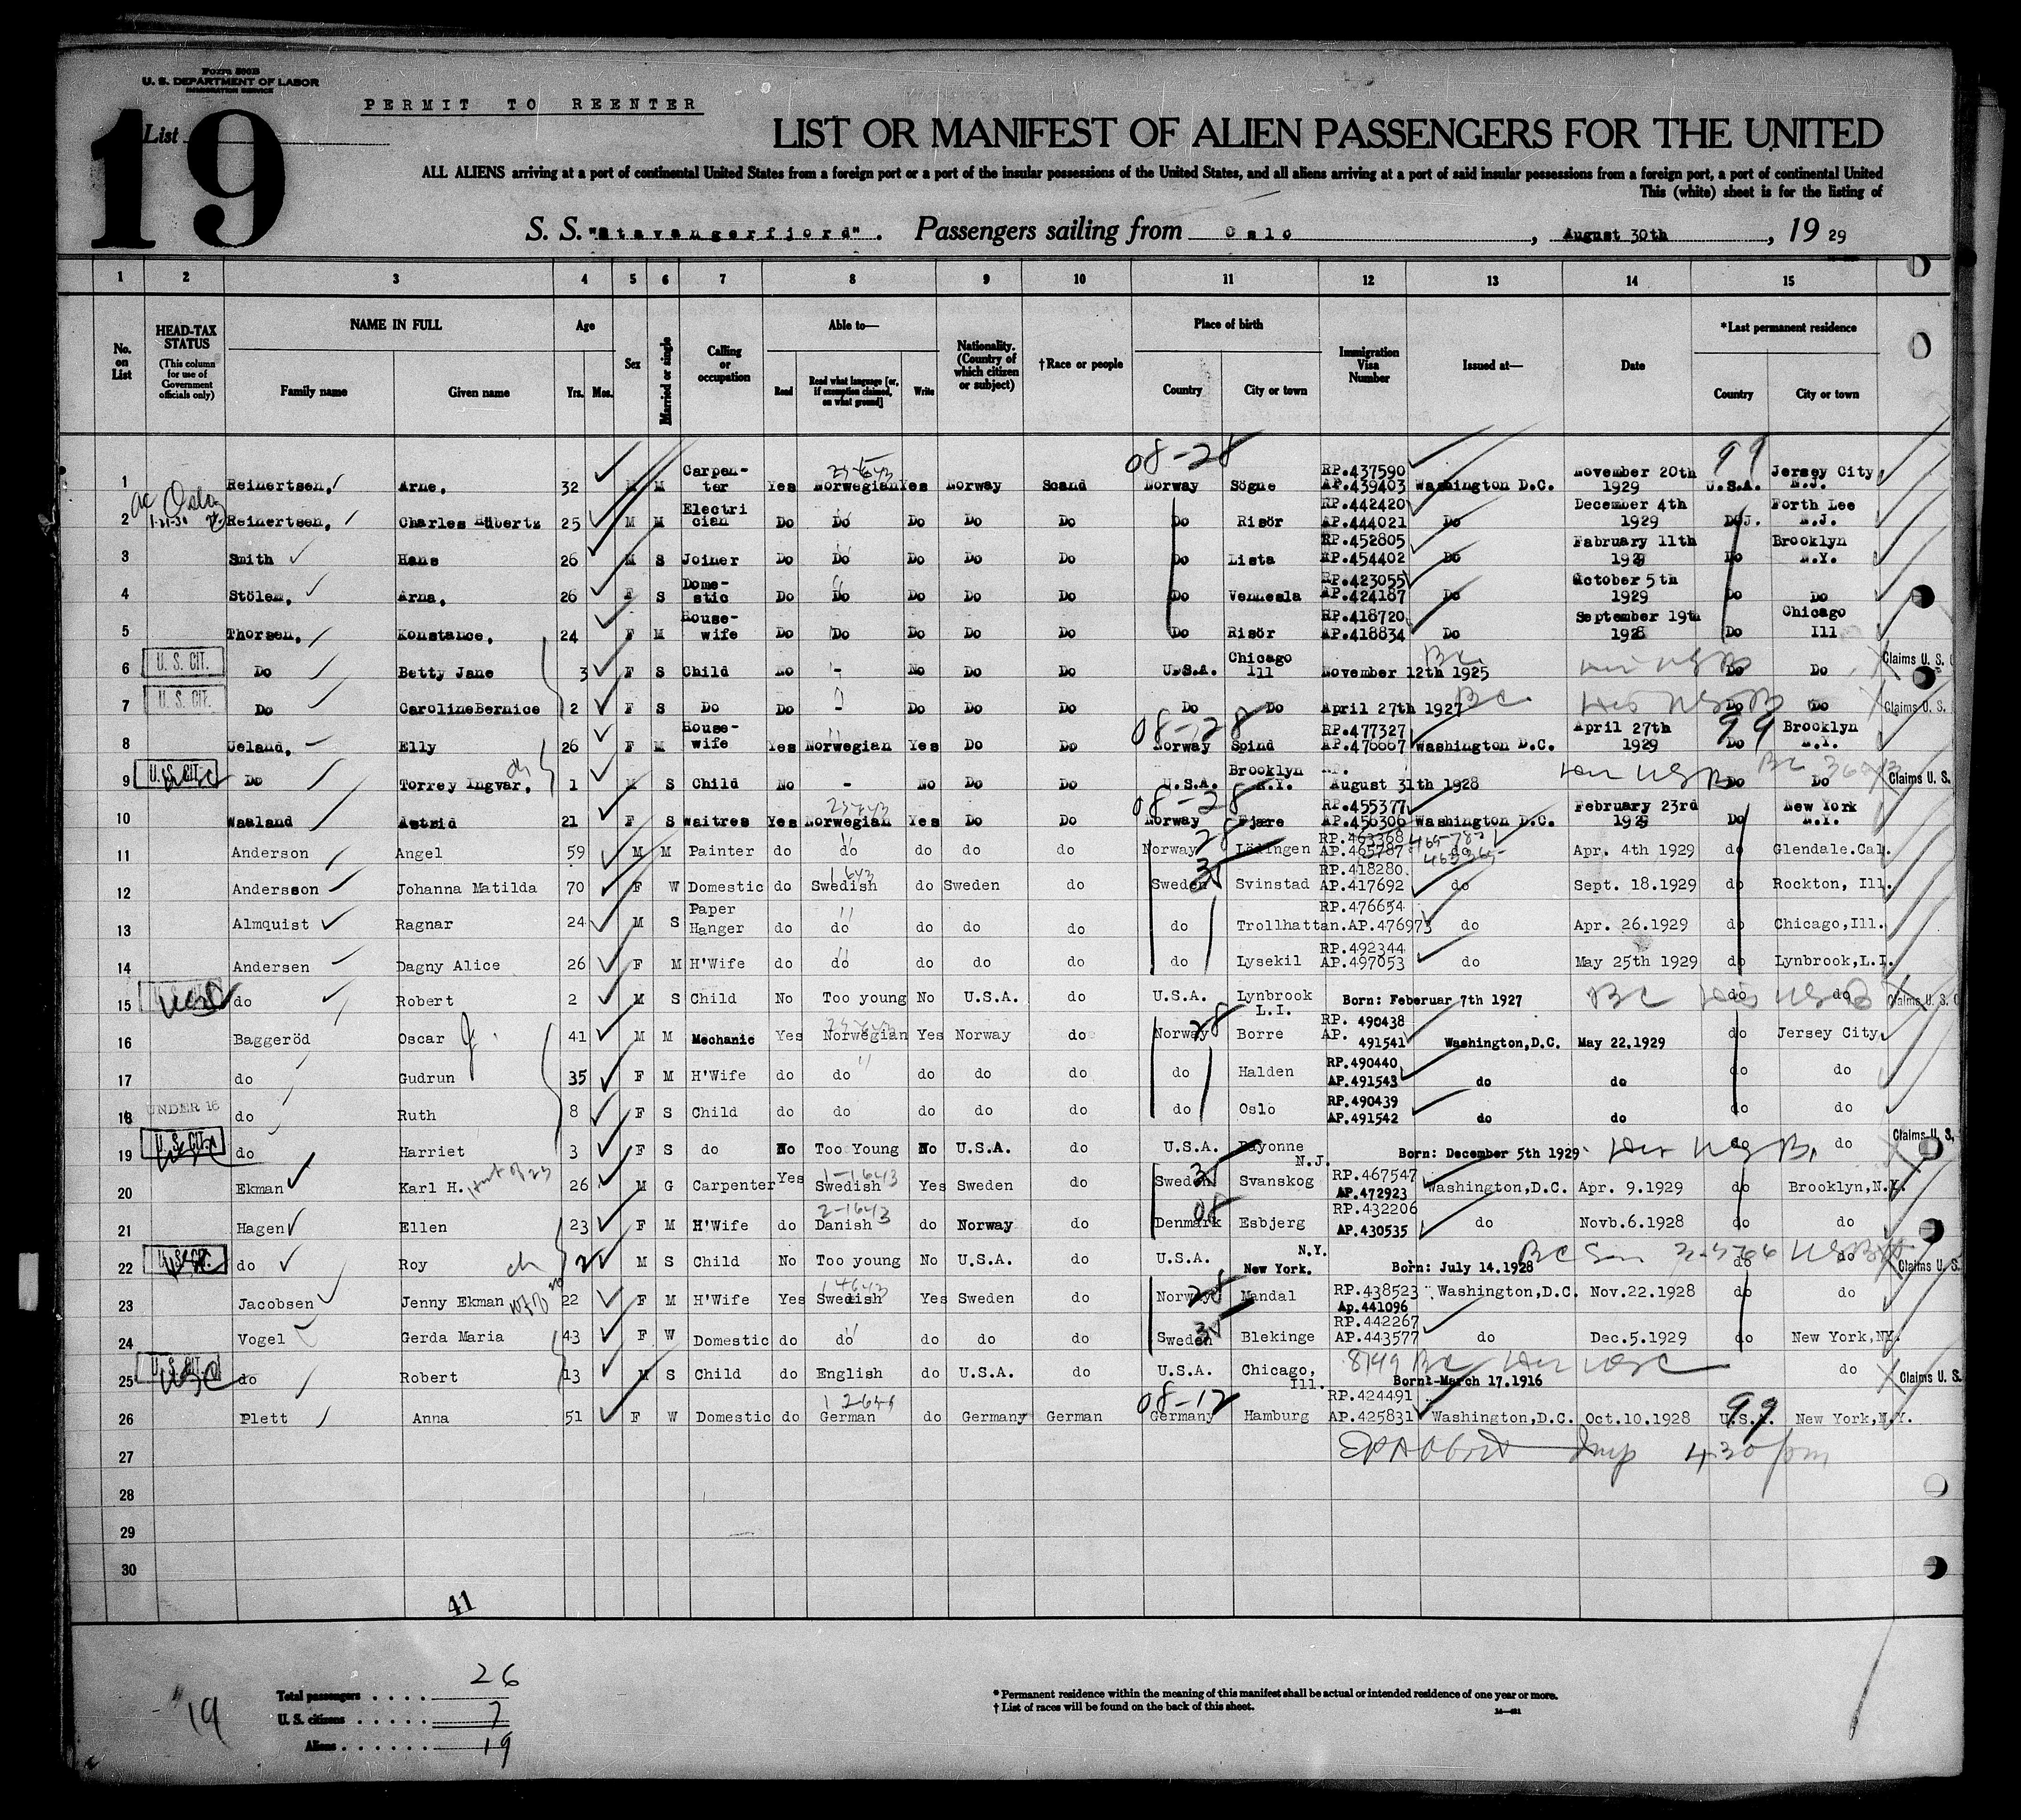 Form 500B
U. S. DEPARTMENT OF LABOR
IMMIGRATION SERVICE
PERMIT TO REENTER
List
19
LIST OR MANIFEST OF ALIEN PASSENGERS FOR THE UNITED
ALL ALIENS arriving at a port of continental United States from a foreign port or a port of the insular possessions of the United States, and all aliens arriving at a port of said insular possessions from a foreign port, a port of continental United
This (white) sheet is for the listing of
S. S. "Stavangerfjord". Passengers sailing from Oslo, August 30th, 1929
1 2 3 4 5 6 7 8 9 10 11 12 13 14 15
No. on List
HEAD-TAX STATUS (This column for use of Government officials only)
NAME IN FULL Family name Given name
Age Yrs. Mos.
Sex
Married or single
Calling or occupation
Able to— Read Read what language [or, if exemption claimed, on what ground] Write
Nationality. (Country of which citizen or subject)
†Race or people
Place of birth Country City or town
Immigration Visa Number
Issued at—
Date
*Last permanent residence Country City or town
08-28 99
1 Reinertsen, Arne, 32 M M Carpen-ter Yes Norwegian Yes Norway Scand Norway Sögne RP.437590 AP.439403 Washington D.C. November 20th 1929 U.S.A. Jersey City N.J.
ac Oslo 1-21-30
2 Reinertsen, Charles Hubertz 25 M M Electri cian Do Do Do Do Do Do Risör RP.442420 AP.444021 Do December 4th 1929 Do Forth Lee N.J.
3 Smith Hans 26 M S Joiner Do Do Do Do Do Do Lista RP.452805 AP.454402 Do Fabruary 11th 1929 Do Brooklyn N.Y.
4 Stölen, Arna, 26 F S Dome-stic Do Do Do Do Do Do Vennesla RP.423055 AP.424187 Do October 5th 1929 Do Do
5 Thorsen, Konstance, 24 F M House-wife Do Do Do Do Do Do Risör RP.418720 AP.418834 Do September 19th 1928 Do Chicago Ill
6 U. S. CIT. Do Betty Jane 3 F S Child No - No Do Do U.S.A. Chicago Ill November 12th 1925 BC Do Do Claims U. S. C
7 U. S. CIT. Do CarolineBernice 2 F S Do Do - Do Do Do Do Do April 27th 1927 BC Do Do Claims U. S.
08-28 99
8 Ueland, Elly 26 F M House-wife Yes Norwegian Yes Do Do Norway Spind RP.477327 AP.476667 Washington D.C. April 27th 1929 Do Brooklyn N.Y.
9 U. S. CIT. Do Torrey Ingvar, ch 1 M S Child No - No Do Do U.S.A. Brooklyn N.Y. August 31th 1928 BC Do Do Claims U. S.
08-28
10 Waaland Astrid 21 F S Waitres Yes Norwegian Yes Do Do Norway Fjære RP.455377 AP.456306 Washington D.C. February 23rd 1929 Do New York N.Y.
11 Anderson Angel 59 M M Painter do do do do do Norway Lödingen RP.463368 AP.465787 do Apr. 4th 1929 do Glendale.Cal.
12 Andersson Johanna Matilda 70 F W Domestic do Swedish do Sweden do Sweden Svinstad RP.418280 AP.417692 do Sept. 18.1929 do Rockton, Ill.
13 Almquist Ragnar 24 M S Paper Hanger do do do do do do Trollhattan. RP.476654 AP.476973 do Apr. 26.1929 do Chicago,Ill.
14 Andersen Dagny Alice 26 F M H'Wife do do do do do do Lysekil RP.492344 AP.497053 do May 25th 1929 do Lynbrook,L.I.
15 do Robert 2 M S Child No Too young No U.S.A. do U.S.A. Lynbrook L.I. Born: Februar 7th 1927 BC do do Claims U. S. C
16 Baggeröd Oscar 41 M M Mechanic Yes Norwegian Yes Norway do Norway Borre RP. 490438 AP. 491541 Washington,D.C. May 22.1929 do Jersey City
17 do Gudrun 35 F M H'Wife do do do do do do Halden RP.490440 AP.491543 do do do do
18 UNDER 16 do Ruth 8 F S Child do do do do do do Oslo RP.490439 AP.491542 do do do do
19 U. S. CIT. do Harriet 3 F S do No Too Young No U.S.A. do U.S.A. Bayonne N.J. Born: December 5th 1929 do Claims U. S.
20 Ekman Karl H. 26 M G Carpenter Yes Swedish Yes Sweden do Sweden Svanskog RP.467547 AP.472923 Washington,D.C. Apr. 9.1929 do Brooklyn,N.Y.
21 Hagen Ellen 23 F M H'Wife do Danish do Norway do Denmark Esbjerg RP.432206 AP.430535 do Novb.6.1928 do do
22 U. S. CIT. do Roy ch 2 M S Child No Too young No U.S.A. do U.S.A. N.Y. New York. Born: July 14.1928 BC do do Claims U. S.
23 Jacobsen Jenny Ekman 22 F M H'Wife Yes Swedish Yes Sweden do Norway Mandal RP.438523 Ap.441096 Washington,D.C. Nov.22.1928 do do
24 Vogel Gerda Maria 43 F W Domestic do do do do do Sweden Blekinge RP.442267 AP.443577 do Dec.5.1929 do New York,NY.
25 U. S. CIT. do Robert 13 M S Child do English do U.S.A. do U.S.A. Chicago, Ill. 8149 BC Born:-March 17.1916 do Claims U. S.
08-12 99
26 Plett Anna 51 F W Domestic do German do Germany German Germany Hamburg RP.424491 AP.425831 Washington,D.C. Oct.10.1928 U.S.A. New York,N.Y.
27 Insp 4.30 pm
28
29
30
41
19
Total passengers . . . . 26
U. S. citizens . . . . . 7
Aliens . . . . . . 19
* Permanent residence within the meaning of this manifest shall be actual or intended residence of one year or more.
† List of races will be found on the back of this sheet.